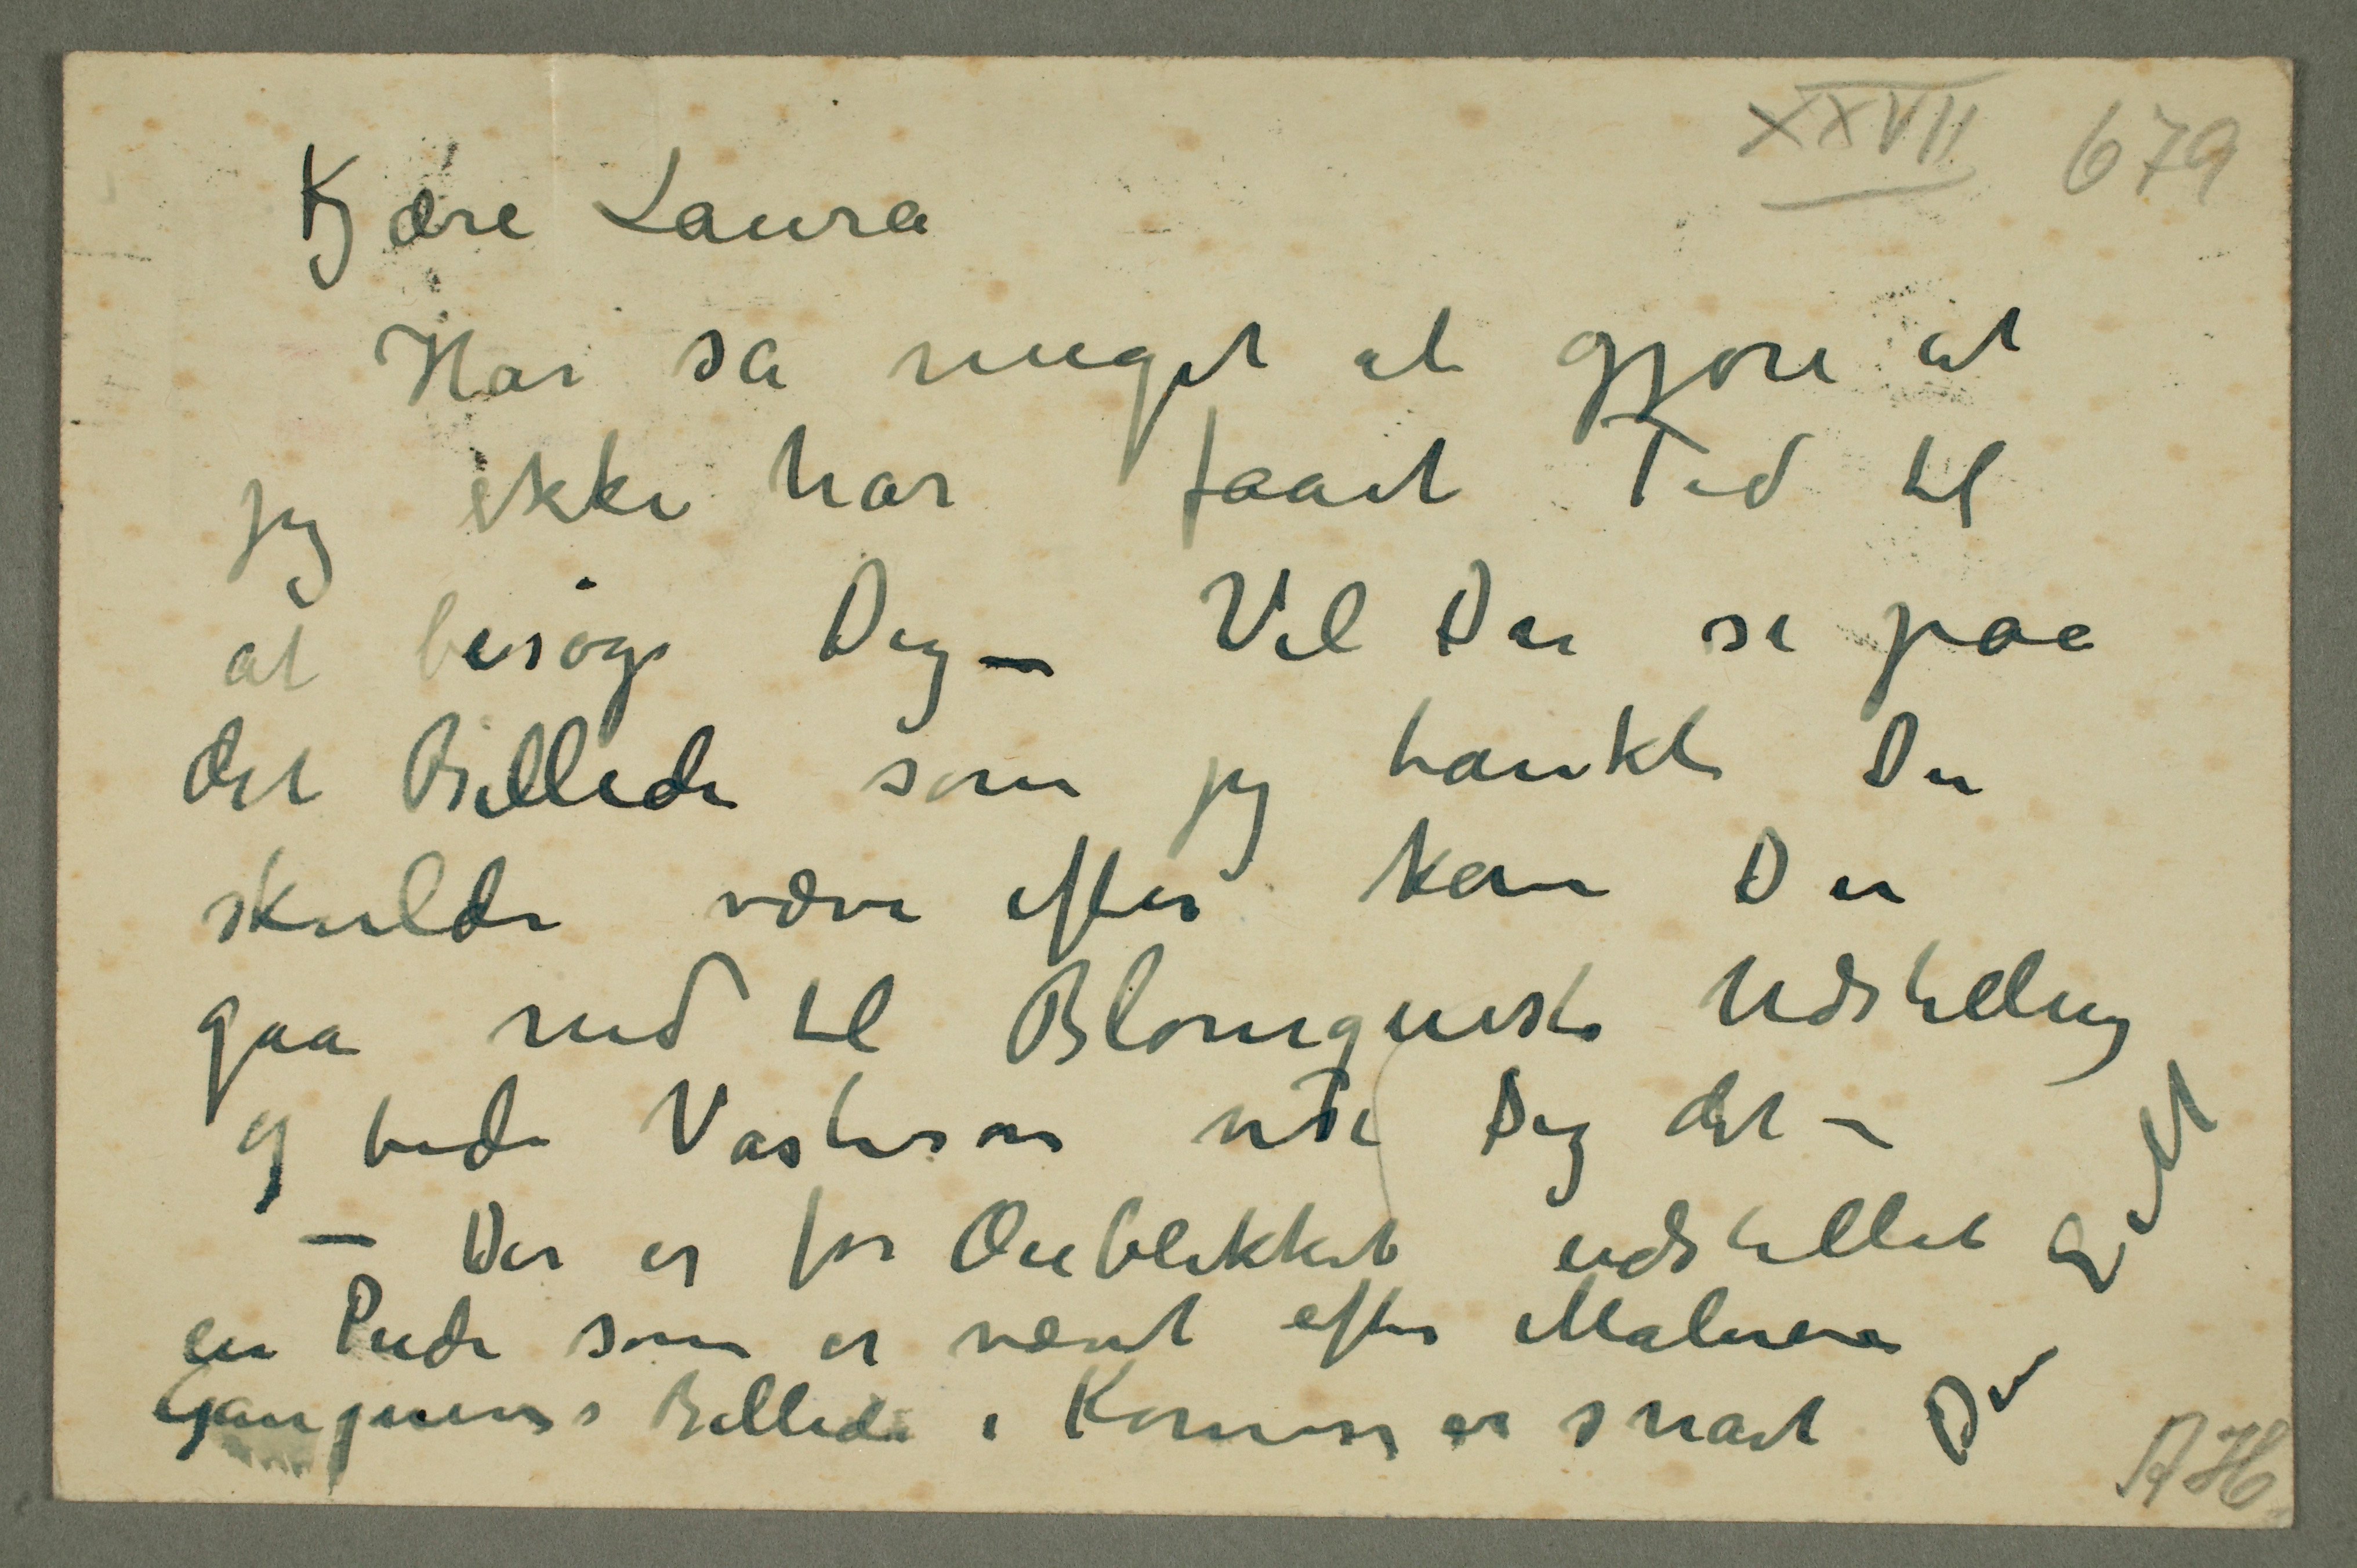 XXVII 679
Kjære Laura
Har sa meget at gjøre at
jeg ikke har faaet Tid til
at besøge Dig – Vil Du se på
det Billede som jeg tænkte Du
skulde væve efter kan Du
gaa ned til Blomqvists Udstilling
og bede vise Dig det –
– Der er for Øieblikket udstillet
en Pude som er vævt efter Malerens
Billede i Kommer snart
Din
EM
AH